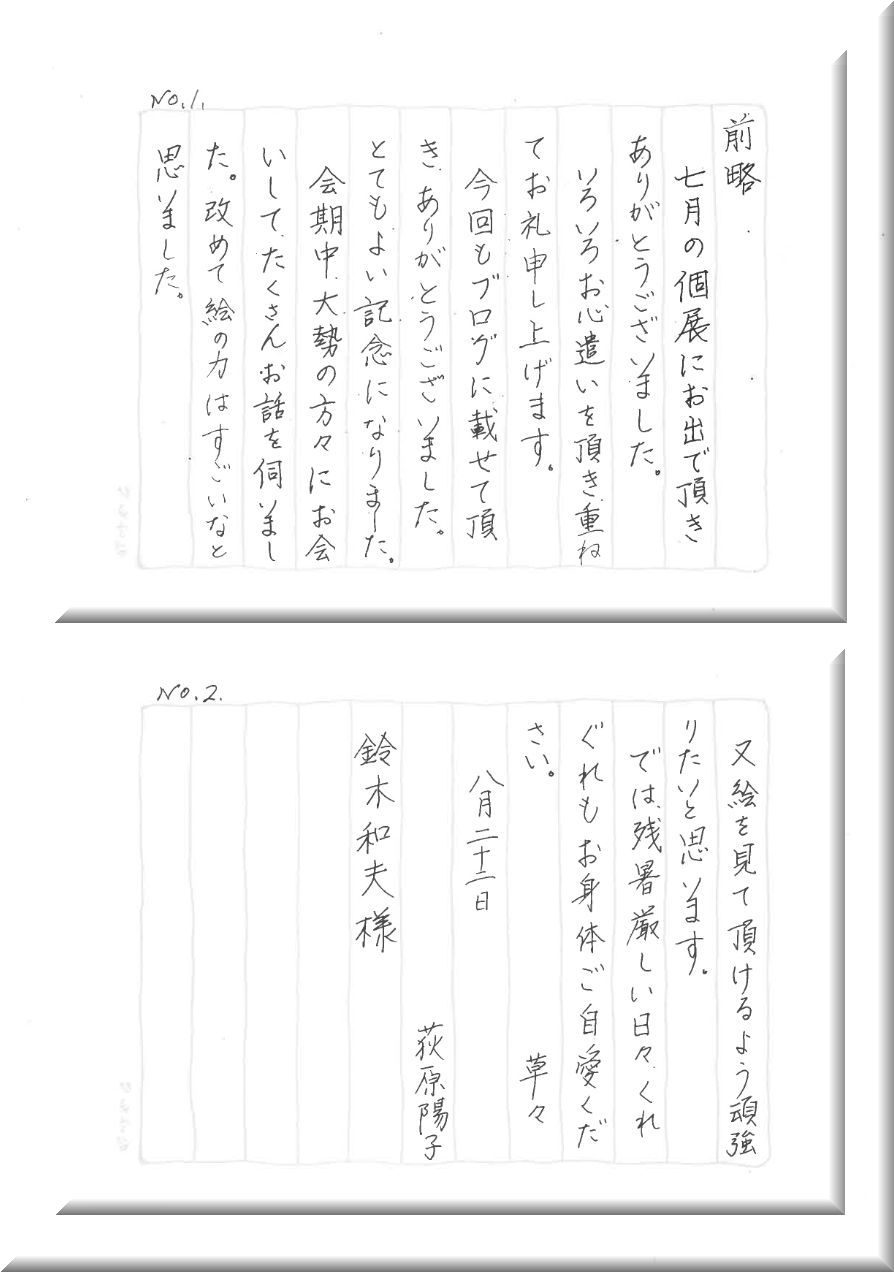 No.1.
前略
七月の個展にお出で頂き
ありがとうございました。
いろいろお心遣いを頂き、重ね
てお礼申し上げます。
今回もブログに載せて頂
き、ありがとうございました。
とてもよい記念になりました。
会期中、大勢の方々にお会
いして、たくさんお話を伺いまし
た。改めて絵の力はすごいなと
思いました。
No.2.
又絵を見て頂けるよう頑強
りたいと思います。
では、残暑厳しい日々、くれ
ぐれもお身体ご自愛くだ
さい。
草々
八月二十二日
荻原陽子
鈴木和夫様